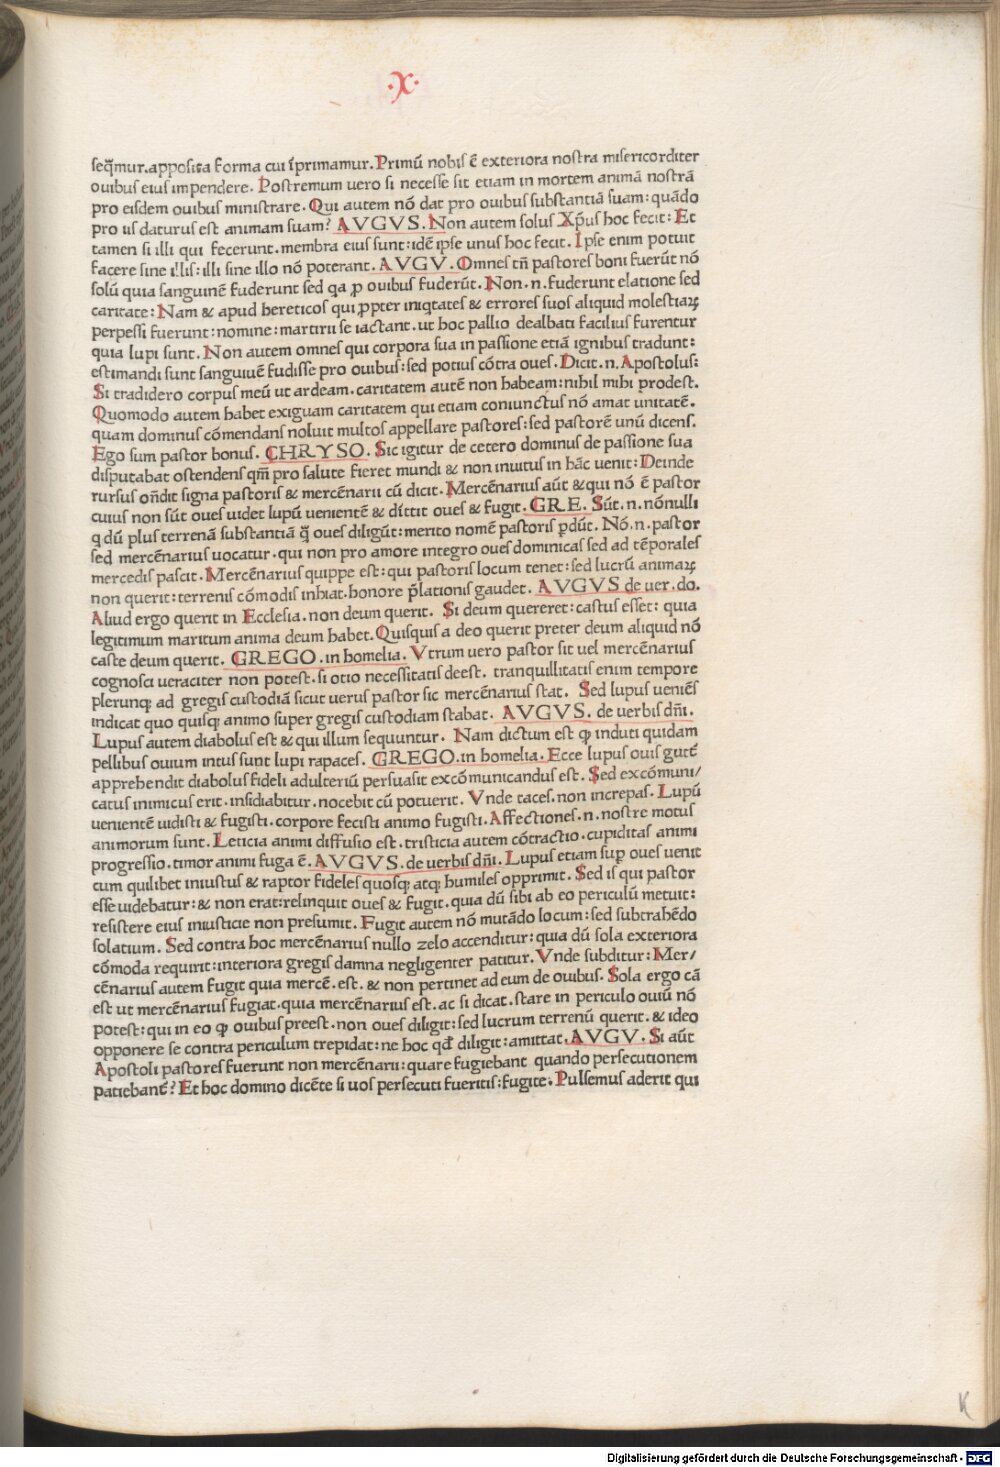 ·X·
seq̄mur.apposita forma cui īprimamur.Primū nobis ē exteriora nostra misericorditer
ouibus eius impendere. Postremum uero si necesse sit etiam in mortem animā nostrā
pro eisdem ouibus ministrare. Qui autem nō dat pro ouibus substantiā suam: quādo
pro iis daturus est animam suam? AVGVS. Non autem solus Xp̄us hoc fecit: Et
tamen si illi qui fecerunt.membra eius sunt:idē ipse unus hoc fecit. Ipse enim potuit
facere sine illis: illi sine illo nō poterant. AVGV. Omnes tñ pastores boni fuerūt nō
solū quia sanguinē fuderunt sed qa ꝓ ouibus fuderūt. Non.n.fuderunt elatione sed
caritate: Nam & apud hereticos qui ꝓpter iniqtates & errores suos aliquid molestiaꝝ
perpessi fuerunt:nomine:martirii se iactant.ut hoc pallio dealbati facilius furentur
quia lupi sunt. Non autem omnes qui corpora sua in passione etiā ignibus tradunt:
estimandi sunt sanguiuē fudisse pro ouibus:sed potius cōtra oues. Dicit.n.Apostolus:
Si tradidero corpus meū ut ardeam.caritatem autē non habeam:nihil mihi prodest.
Quomodo autem habet exiguam caritatem qui etiam coniunctus nō amat unitatē.
quam dominus cōmendans noluit multos appellare pastores:sed pastorē unū dicens.
Ego sum pastor bonus. CHRYSO. Sic igitur de cetero dominus de passione sua
disputabat ostendens qm̄ pro salute fieret mundi & non inuitus in hāc uenit: Deinde
rursus oñdit signa pastoris & mercēnarii cū dicit. Mercēnarius aūt & qui nō ē pastor
cuius non sūt oues uidet lupū uenientē & dīttit oues & fugit. GRE. Sūt.n.nōnulli
q dū plus terrenā substantiā q̄ oues diligūt:merito nomē pastoris ꝑdūt. Nō.n.pastor
sed mercēnarius uocatur.qui non pro amore integro oues dominicas sed ad tēporales
mercedis pascit. Mercēnarius quippe est:qui pastoris locum tenet:sed lucrū animaꝝ
non querit:terrenis cōmodis inhiat.honore p̄lationis gaudet. AVGVS de uer.do.
Aliud ergo querit in Ecclesia.non deum querit. Si deum quereret:castus esset: quia
legitimum maritum anima deum habet. Quisquis a deo querit preter deum aliquid nō
caste deum querit. GREGO.in homelia. Vtrum uero pastor sit uel mercēnarius
cognosci ueraciter non potest.si otio necessitatis deest. tranquillitatis enim tempore
plerunq; ad gregis custodiā sicut uerus pastor sic mercēnarius stat. Sed lupus ueniēs
indicat quo quisq; animo super gregis custodiam stabat. AVGVS. de uerbis dñi.
Lupus autem diabolus est & qui illum sequuntur. Nam dictum est ꝙ induti quidam
pellibus ouium intus sunt lupi rapaces. GREGO.in homelia. Ecce lupus ouis gutē
apprehendit diabolus fideli adulteriū persuasit excōmunicandus est. Sed excōmuni/
catus inimicus erit.insidiabitur.nocebit cū potuerit. Vnde taces.non increpas.Lupū
uenientē uidisti & fugisti.corpore fecisti animo fugisti.Affectiones.n.nostre motus
animorum sunt.Leticia animi diffusio est.tristicia autem cōtractio.cupiditas animi
progressio.timor animi fuga ē. AVGVS.de uerbis dñi. Lupus etiam suꝑ oues uenit
cum quilibet iniustus & raptor fideles quosq; atq; humiles opprimit. Sed is qui pastor
esse uidebatur:& non erat:relinquit oues & fugit.quia dū sibi ab eo periculū metuit:
resistere eius iniusticie non presumit. Fugit autem nō mutādo locum:sed subtrahēdo
solatium. Sed contra hoc mercēnarius nullo zelo accenditur:quia dū sola exteriora
cōmoda requirit:interiora gregis damna negligenter patitur. Vnde subditur: Mer/
cēnarius autem fugit quia mercē.est.& non pertinet ad eum de ouibus. Sola ergo cā
est ut mercēnarius fugiat.quia mercēnarius est.ac si dicat.stare in periculo ouiū nō
potest:qui in eo ꝙ ouibus preest.non oues diligit:sed lucrum terrenū querit.& ideo
opponere se contra periculum trepidat:ne hoc qd̄ diligit:amittat. AVGV. Si aūt
Apostoli pastores fuerunt non mercēnarii:quare fugiebant quando persecutionem
patiebant̄? Et hoc domino dicēte si uos persecuti fueritis:fugite. Pulsemus aderit qui
K
Digitalisierung gefördert durch die Deutsche Forschungsgemeinschaft - DFG